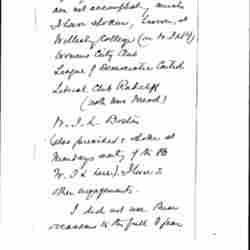 am not accomplishing much
I have spoken, known, at
Wellesley College (on to
Womens City Club
League of Democratic Control
Liberal Club Radcliff
(with Mrs Mead)
W. I. L. Boston
(also preached & spoke at
Mondays meeting of the
W. I. L. here). I have 2
other engagements.
I did not use these
occasions to the full I fear